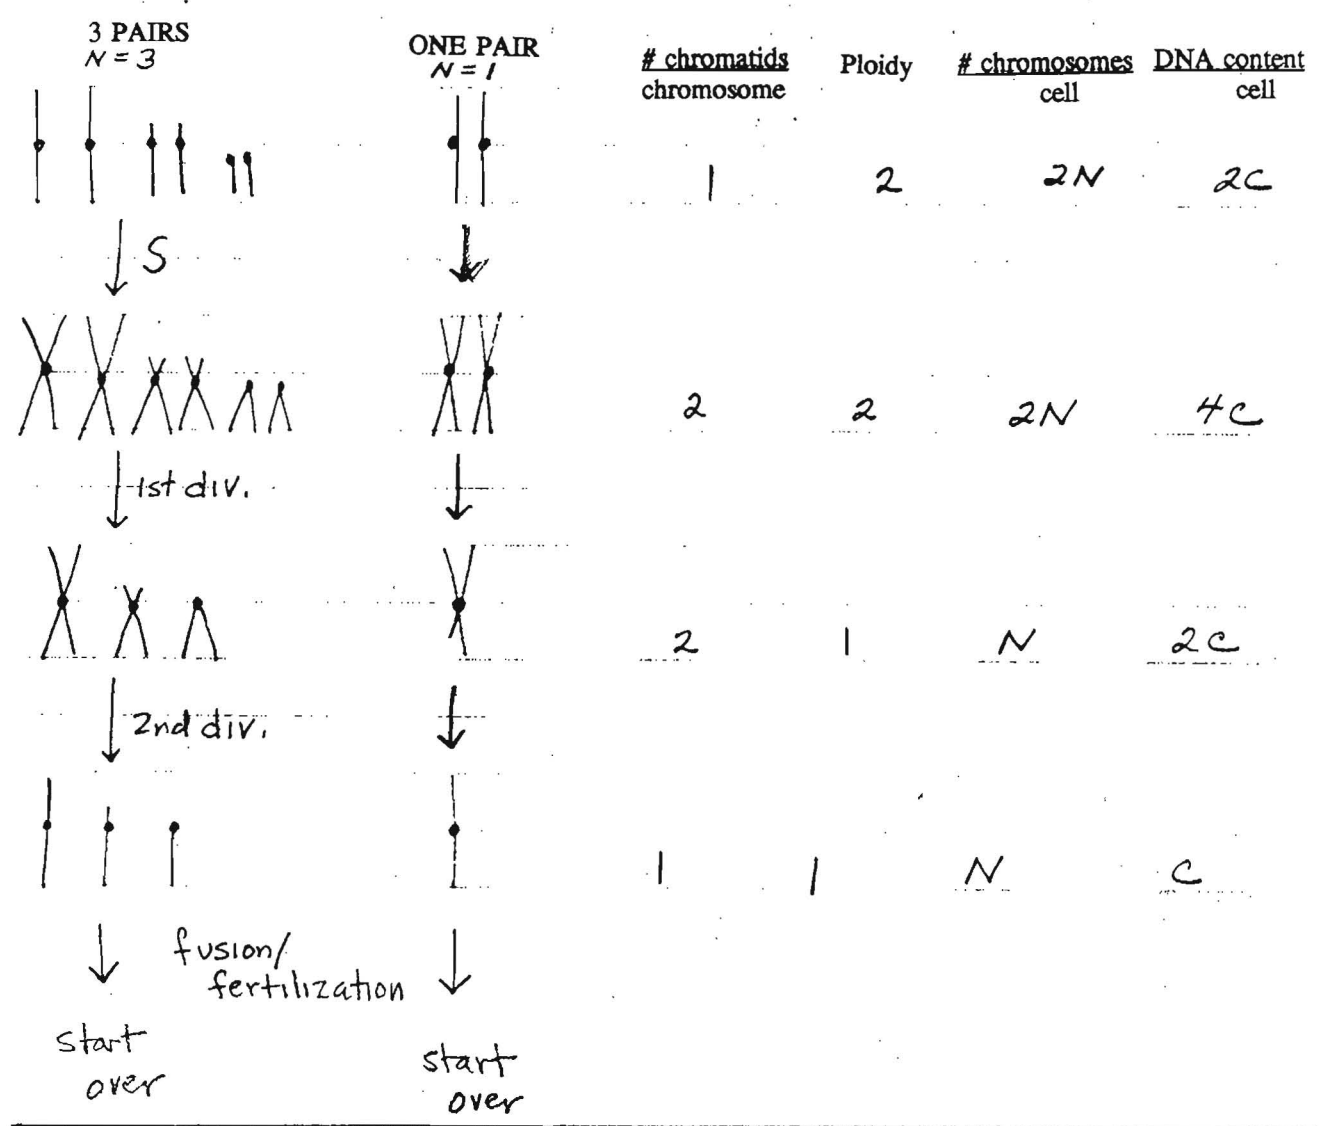 3 PAIRS
N = 3
ONE PAIR
N = 1
# chromatids
chromosome
Ploidy
# chromosomes
cell
DNA content
cell
1 2 2N 2C
S
2 2 2N 4C
1st div.
2 1 N 2C
2nd div.
1 1 N C
fusion/
fertilization
start
over
start
over